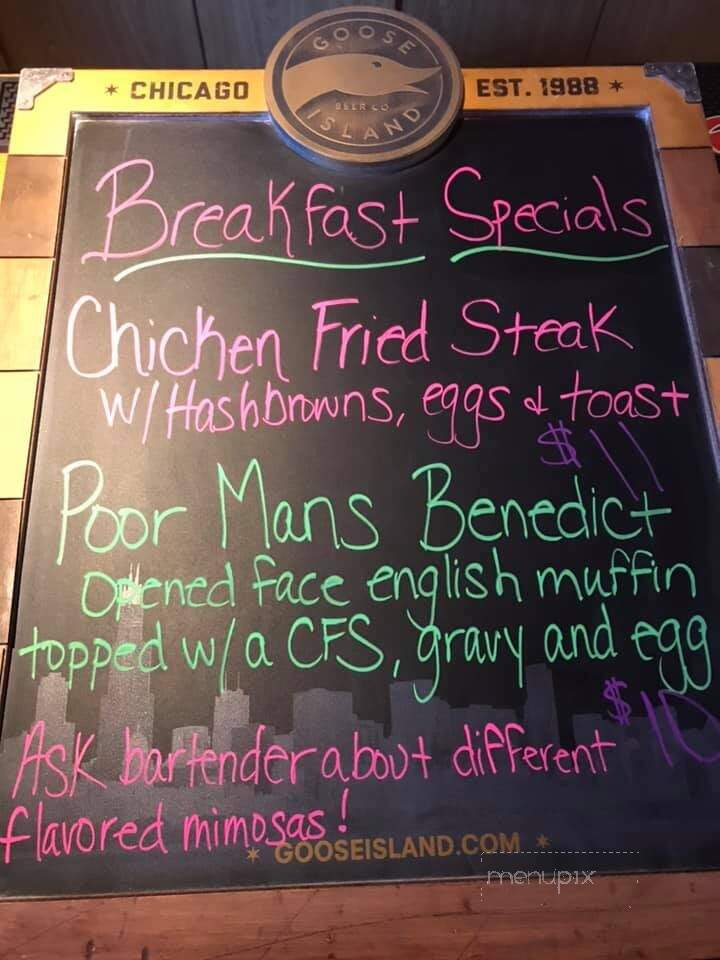 GOOSE
BEER CO
ISLAND
* CHICAGO
EST. 1988 *
Breakfast Specials
Chicken Fried Steak
w/Hashbrowns, eggs & toast
$11
Poor Mans Benedict
opened face english muffin
topped w/a CFS, gravy and egg
$10
Ask bartender about different
flavored mimosas!
* GOOSEISLAND.COM *
menupix